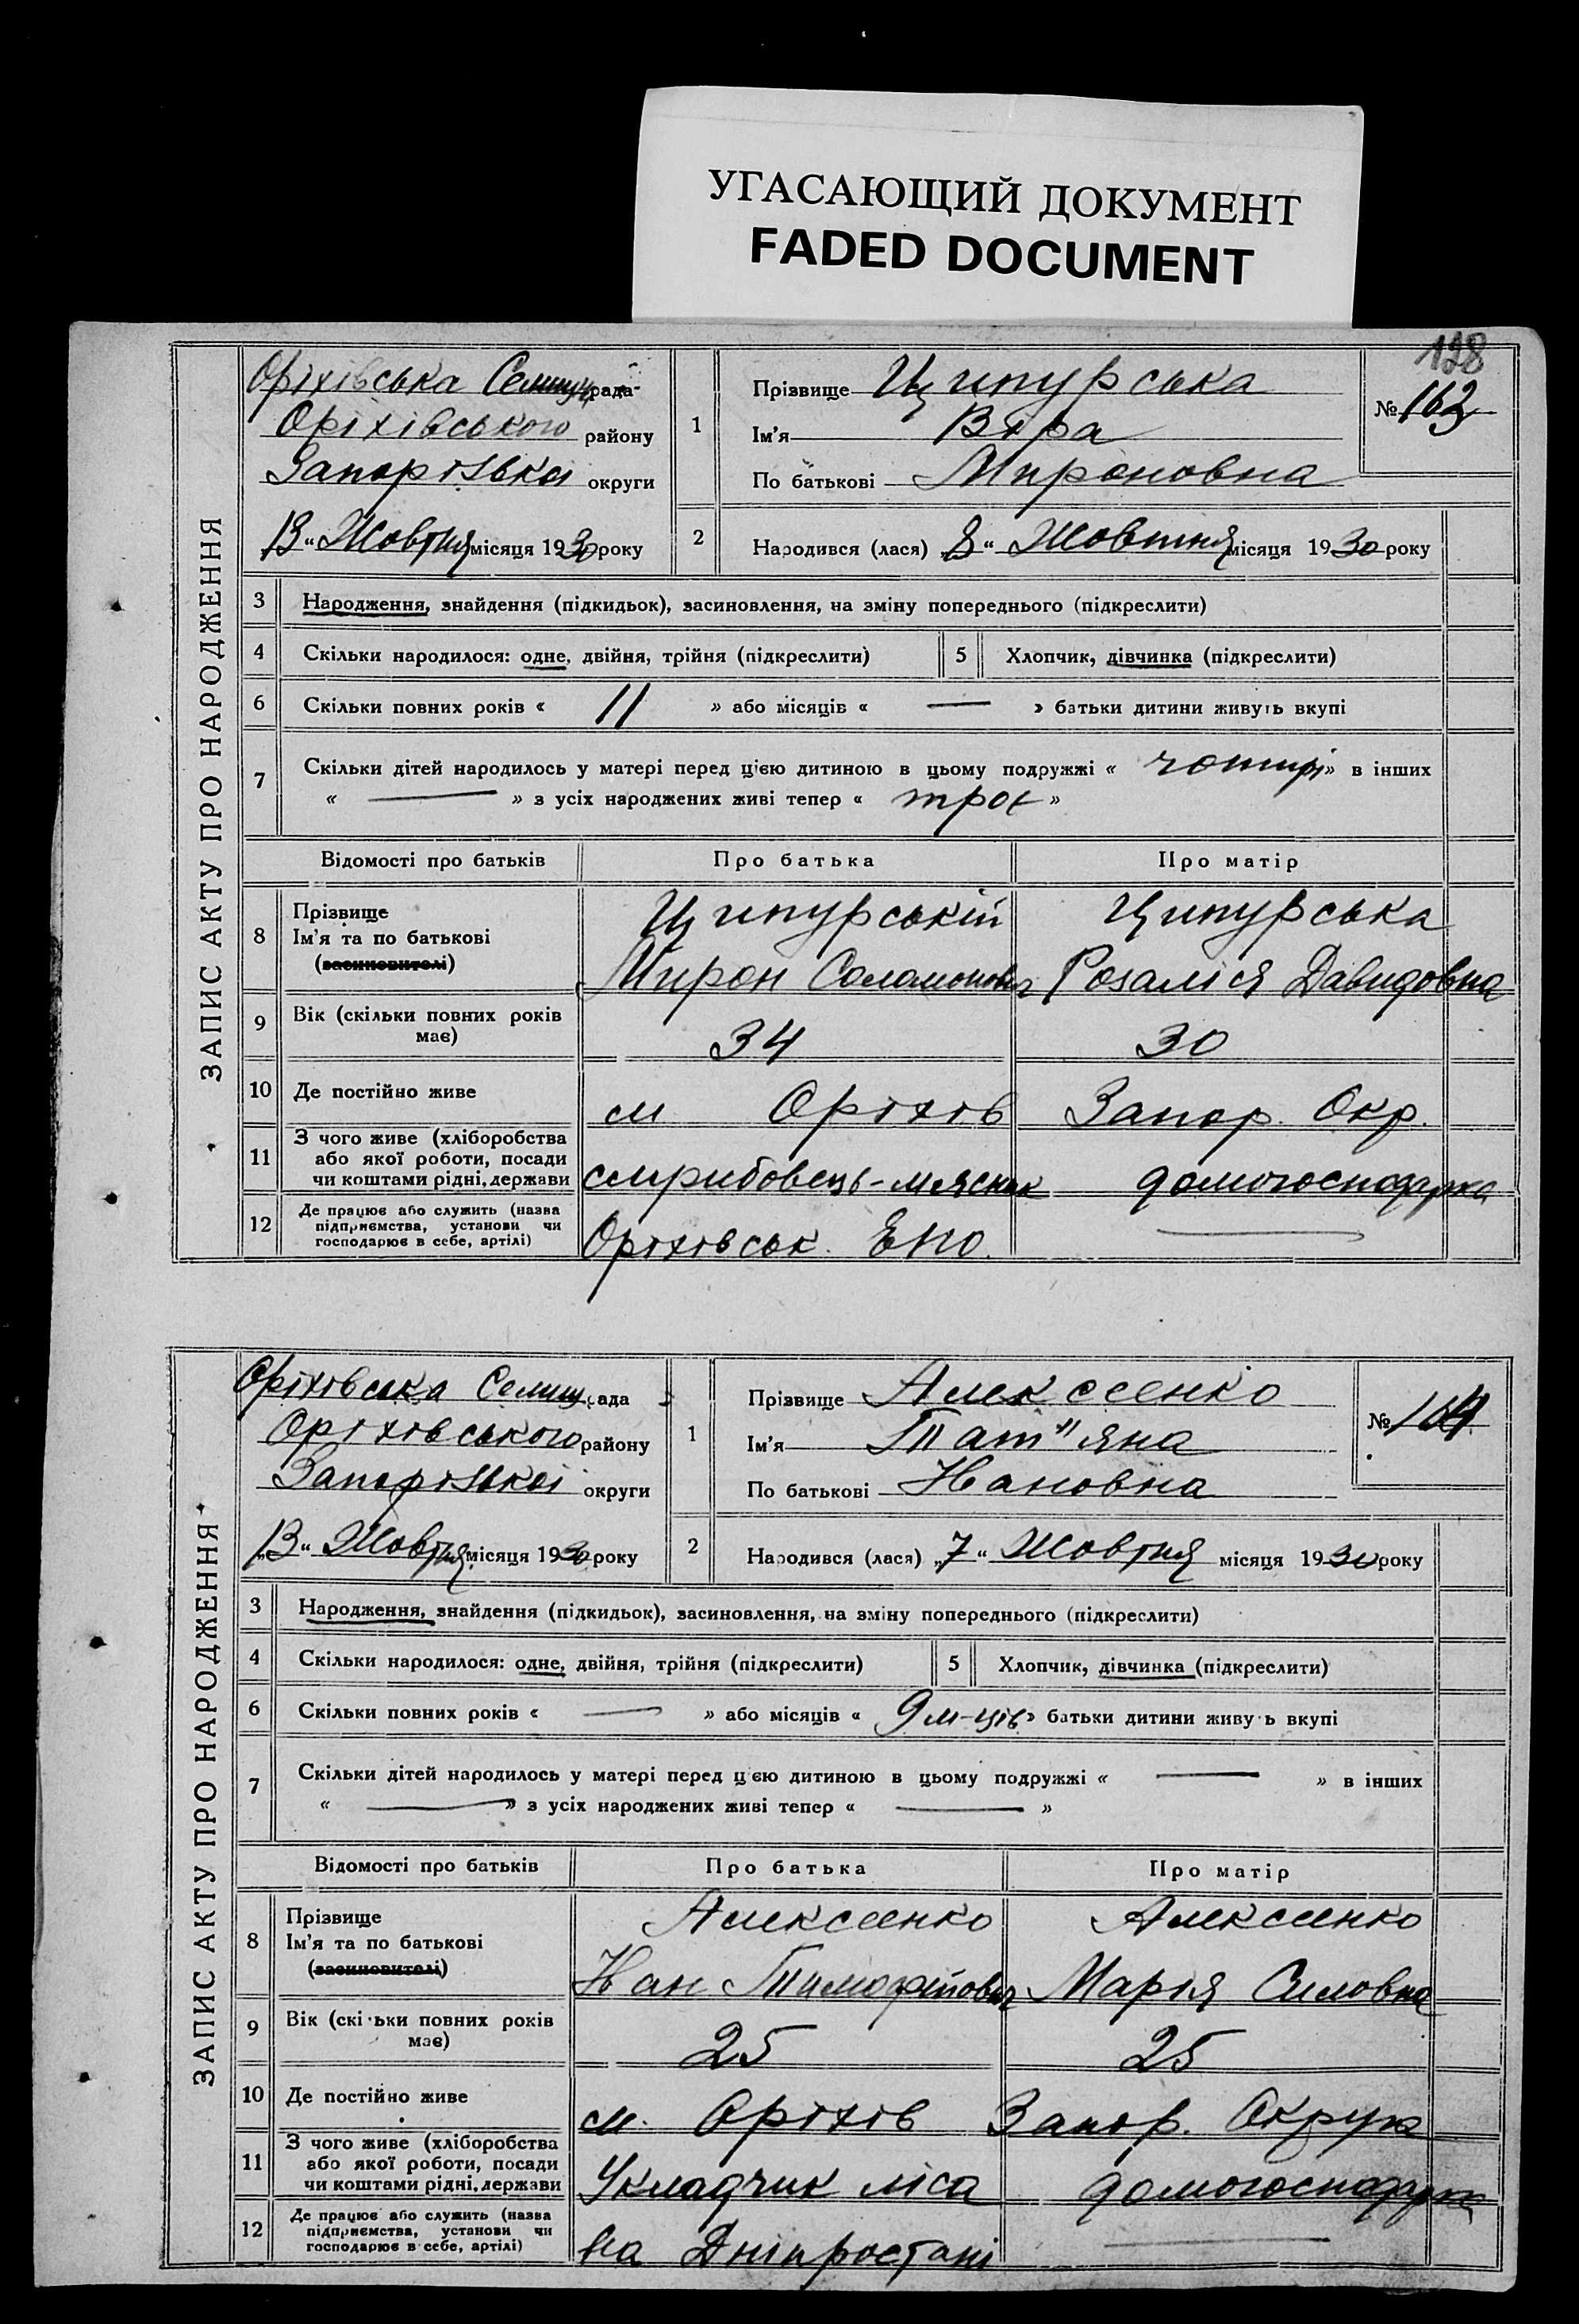 УГАСАЮЩИЙ ДОКУМЕНТ
FADED DOCUMENT
198
ЗАПИС АКТУ ПРО НАРОДЖЕННЯ
Оріхівська Селищ. рада
Оріхівського району
Запорізької округи
„13“ Жовтня місяця 1930 року
1 Прізвище Ципурська
Ім'я Віра
По батькові Мироновна
№ 163
2 Народився (лася) „8“ Жовтня місяця 1930 року
3 Народження, знайдення (підкидьок), засиновлення, на зміну попереднього (підкреслити)
4 Скільки народилося: одне, двійня, трійня (підкреслити) 5 Хлопчик, дівчинка (підкреслити)
6 Скільки повних років « 11 » або місяців « — » батьки дитини живуть вкупі
7 Скільки дітей народилось у матері перед цією дитиною в цьому подружжі « чотирі » в інших
« — » з усіх народжених живі тепер « троє »
Відомості про батьків Про батька Про матір
8 Прізвище Ципурській Ципурська
Ім'я та по батькові
(засиновителі) Мирон Соламонович Розалія Давидовна
9 Вік (скільки повних років
має) 34 30
10 Де постійно живе м Оріхів Запор. Окр.
11 З чого живе (хліборобства
або якої роботи, посади
чи коштами рідні, держави домогосподарка
12 Де працює або служить (назва
підприємства, установи чи
господарює в себе, артілі) Оріхівськ. ЕПО. —
ЗАПИС АКТУ ПРО НАРОДЖЕННЯ
Оріхівська Селищ. рада
Оріхівського району
Запорізької округи
„13“ Жовтня місяця 1930 року
1 Прізвище Алексєенко
Ім'я Тат"яна
По батькові Ивановна
№ 164
2 Народився (лася) „7“ Жовтня місяця 1930 року
3 Народження, знайдення (підкидьок), засиновлення, на зміну попереднього (підкреслити)
4 Скільки народилося: одне, двійня, трійня (підкреслити) 5 Хлопчик, дівчинка (підкреслити)
6 Скільки повних років « — » або місяців « 9 м-ців » батьки дитини живуть вкупі
7 Скільки дітей народилось у матері перед цією дитиною в цьому подружжі « — » в інших
« — » з усіх народжених живі тепер « — »
Відомості про батьків Про батька Про матір
8 Прізвище Алексеенко Алексеенко
Ім'я та по батькові
(засиновителі) Иван Тимофійович Марія Силовна
9 Вік (скільки повних років
має) 25 25
10 Де постійно живе м. Оріхів Запор. Округа
11 З чого живе (хліборобства
або якої роботи, посади
чи коштами рідні, держави Укладчик ліса домогосподарка
12 Де працює або служить (назва
підприємства, установи чи
господарює в себе, артілі) на Дніпростані —